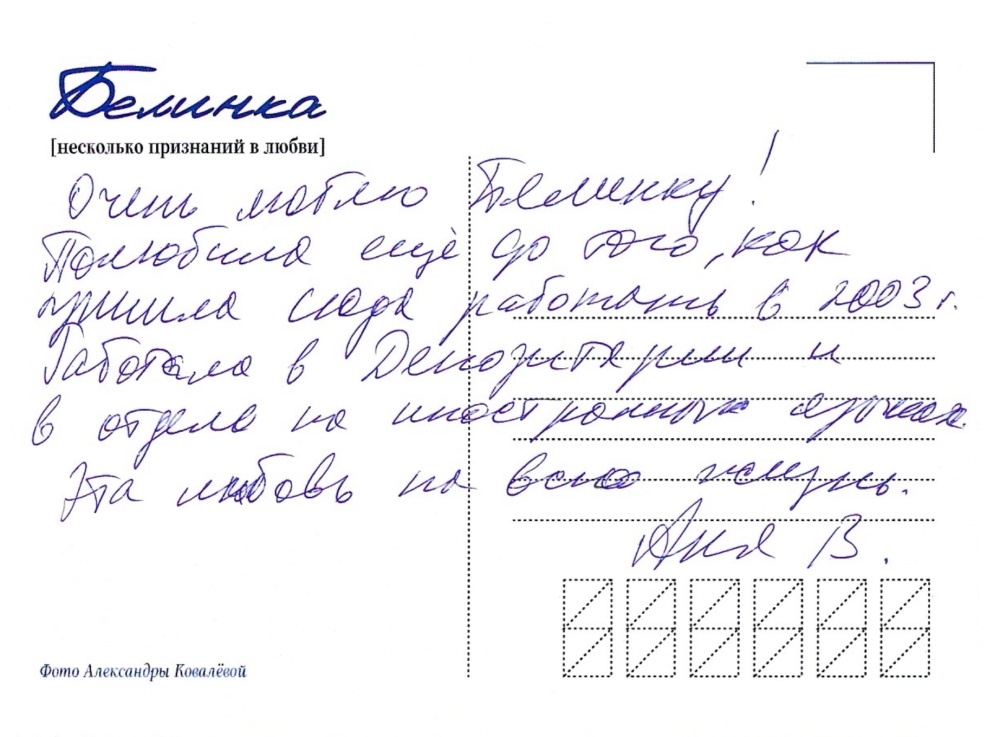 Белинка
[несколько признаний в любви]
Очень люблю Белинку!
Полюбила ещё до того, как
пришла сюда работать в 2003 г.
Работала в Депозитарии и
в отделе на иностранных языках.
Эта любовь на всю жизнь.
Аня В.
Фото Александры Ковалёвой